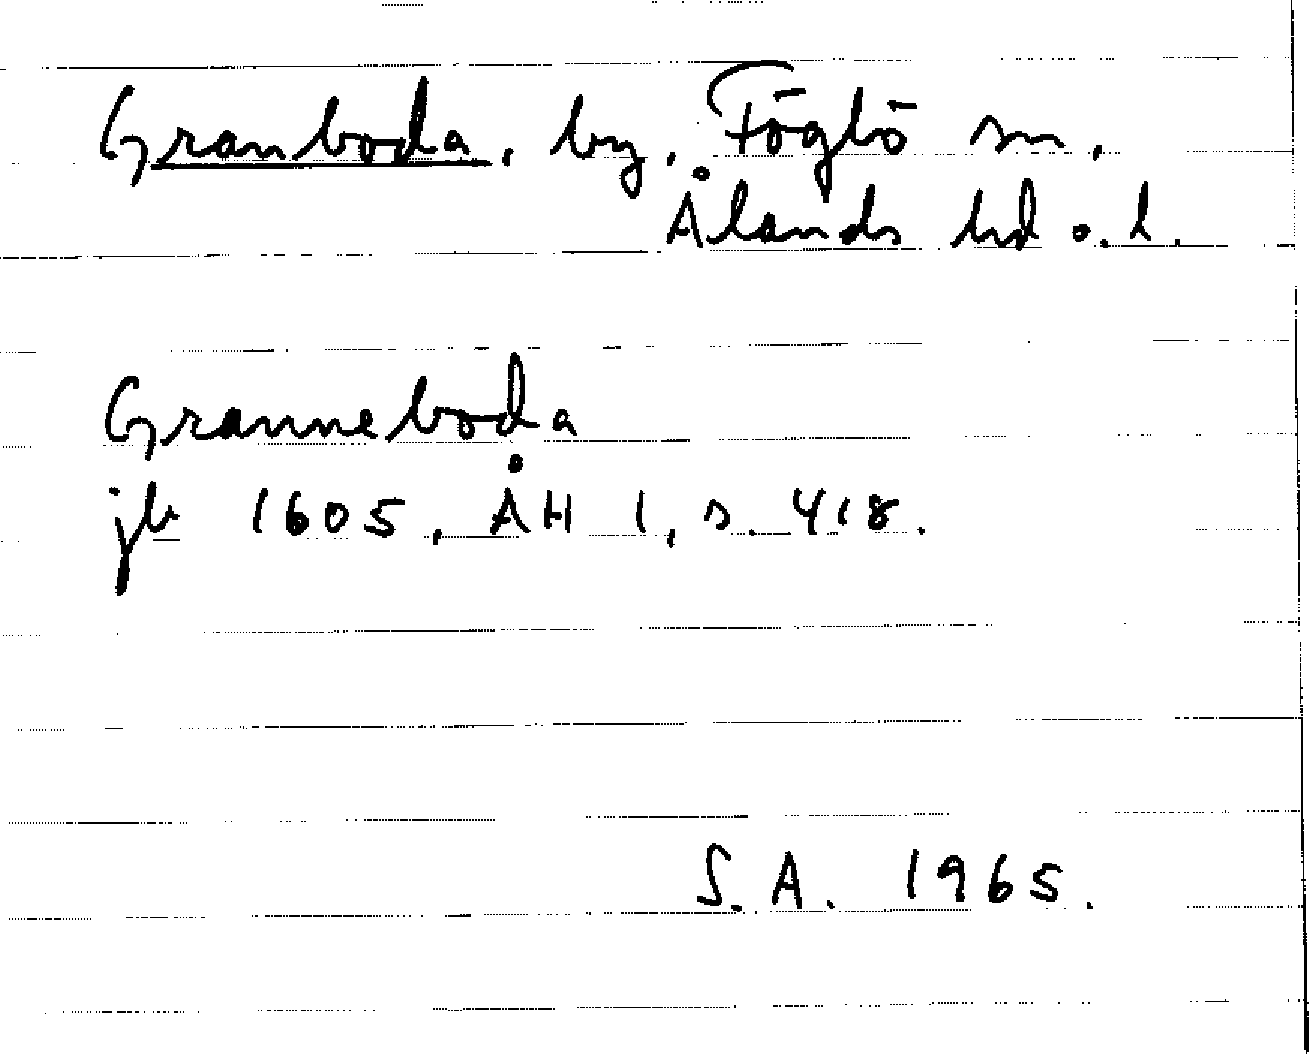 Granboda, by, Föglö sn,
Ålands hd o. l.
Granneboda
jb 1605, ÅH 1, s. 418.
S. A. 1965.